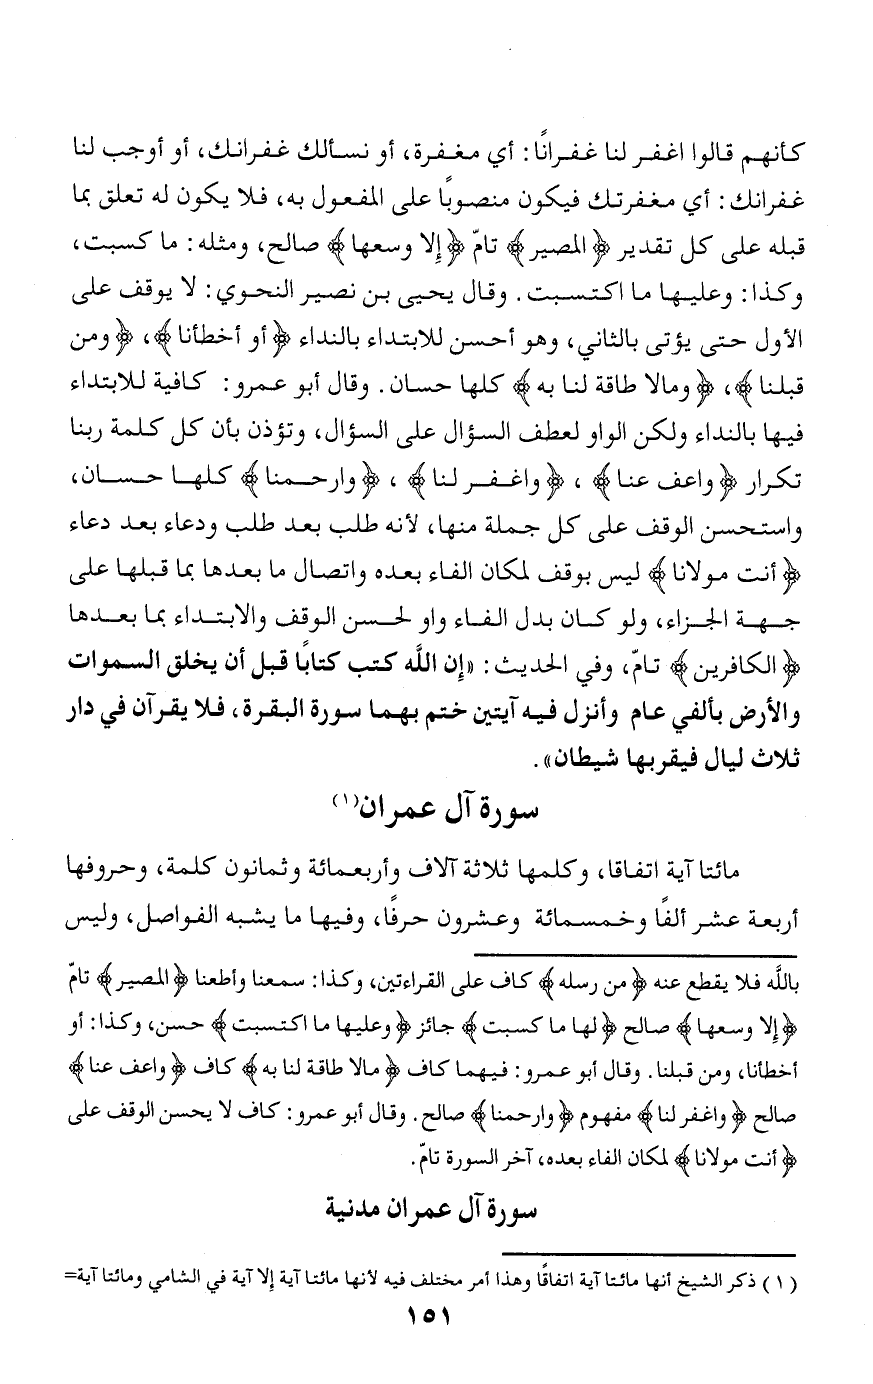 كأنهم قالوا اغفر لنا غفرانًا: أي مغفرة، أو نسألك غفرانك، أو أوجب لنا
غفرانك: أي مغفرتك فيكون منصوبًا على المفعول به، فلا يكون له تعلق بما
قبله على كل تقدير ﴿المصير﴾ تامّ ﴿إلا وسعها﴾ صالح، ومثله: ما كسبت،
وكذا: وعليها ما اكتسبت. وقال يحيى بن نصير النحوي: لا يوقف على
الأول حتى يؤتى بالثاني، وهو أحسن للابتداء بالنداء ﴿أو أخطأنا﴾، ﴿ومن
قبلنا﴾، ﴿ومالا طاقة لنا به﴾ كلها حسان. وقال أبو عمرو: كافية للابتداء
فيها بالنداء ولكن الواو لعطف السؤال على السؤال، وتؤذن بأن كل كلمة ربنا
تكرار ﴿واعف عنا﴾ ، ﴿واغفر لنا﴾ ، ﴿وارحمنا﴾ كلها حسان،
واستحسن الوقف على كل جملة منها، لأنه طلب بعد طلب ودعاء بعد دعاء
﴿أنت مولانا﴾ ليس بوقف لمكان الفاء بعده واتصال ما بعدها بما قبلها على
جهة الجزاء، ولو كان بدل الفاء واو لحسن الوقف والابتداء بما بعدها
﴿الكافرين﴾ تامّ، وفي الحديث: «إن اللَّه كتب كتابًا قبل أن يخلق السموات
والأرض بألفي عام وأنزل فيه آيتين ختم بهما سورة البقرة، فلا يقرآن في دار
ثلاث ليال فيقربها شيطان».
سورة آل عمران(١)
مائتا آية اتفاقا، وكلمها ثلاثة آلاف وأربعمائة وثمانون كلمة، وحروفها
أربعة عشر ألفًا وخمسمائة وعشرون حرفًا، وفيها ما يشبه الفواصل، وليس
باللَّه فلا يقطع عنه ﴿من رسله﴾ كاف على القراءتين، وكذا: سمعنا وأطعنا ﴿المصير﴾ تامّ
﴿إلا وسعها﴾ صالح ﴿لها ما كسبت﴾ جائز ﴿وعليها ما اكتسبت﴾ حسن، وكذا: أو
أخطأنا، ومن قبلنا. وقال أبو عمرو: فيهما كاف ﴿مالا طاقة لنا به﴾ كاف ﴿واعف عنا﴾
صالح ﴿واغفر لنا﴾ مفهوم ﴿وارحمنا﴾ صالح. وقال أبو عمرو: كاف لا يحسن الوقف على
﴿أنت مولانا﴾ لمكان الفاء بعده، آخر السورة تامّ.
سورة آل عمران مدنية
(١) ذكر الشيخ أنها مائتا آية اتفاقًا وهذا أمر مختلف فيه لأنها مائتا آية إلا آية في الشامي ومائتا آية=
١٥١